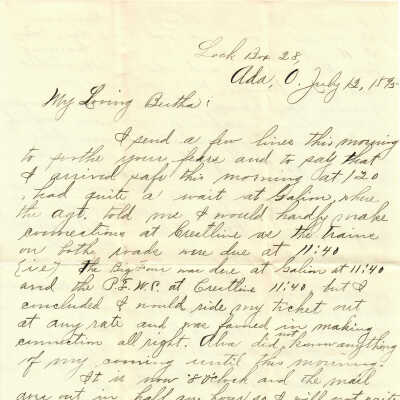 Lock Box 28,
Ada, O. July 12, 1895
My Loving Bertha:
I send a few lines this morning
to soothe your fears and to say that
I arrived safe this morning at 1:20
, had quite a wait at Galion, where
the agt. told me I would hardly make
connections at Crestline as the trains
on both roads were due at 11:40
(i.e.) The Big Four was due at Galion at 11:40
and the P.F.W.&C. at Crestline 11:40, but I
concluded I would ride my ticket out
at any rate and was favored in making
connection all right. Alva did not know anything
of my coming until this morning.
It is now 8 O'clock and the mail
goes out in half an hour so I will not write